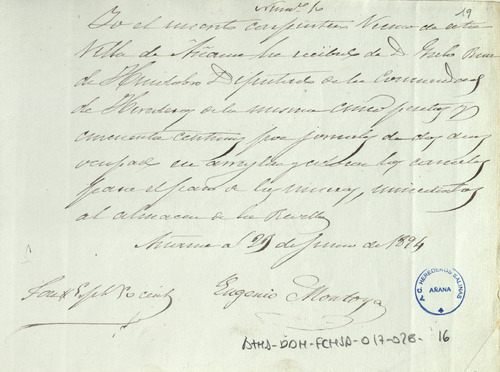 19
Yo el maestro carpintero Vecino de esta
Villa de Añana he recibido de D
de Huidobro Diputado de la Comunidad
de Herederos de la misma cinco pesetas y
cincuenta centimos por jornales de dos dias
ocupado en arreglar y colocar los canales
para el paso de las mueras
al almacen de la Revilla
Añana a 29 de Junio de 1894
Son 5 Ps 50 cents
Eugenio Montoya
G. HEREDEROS SALINAS
AÑANA
ATHA-DOH-FCHSA-017-028-16